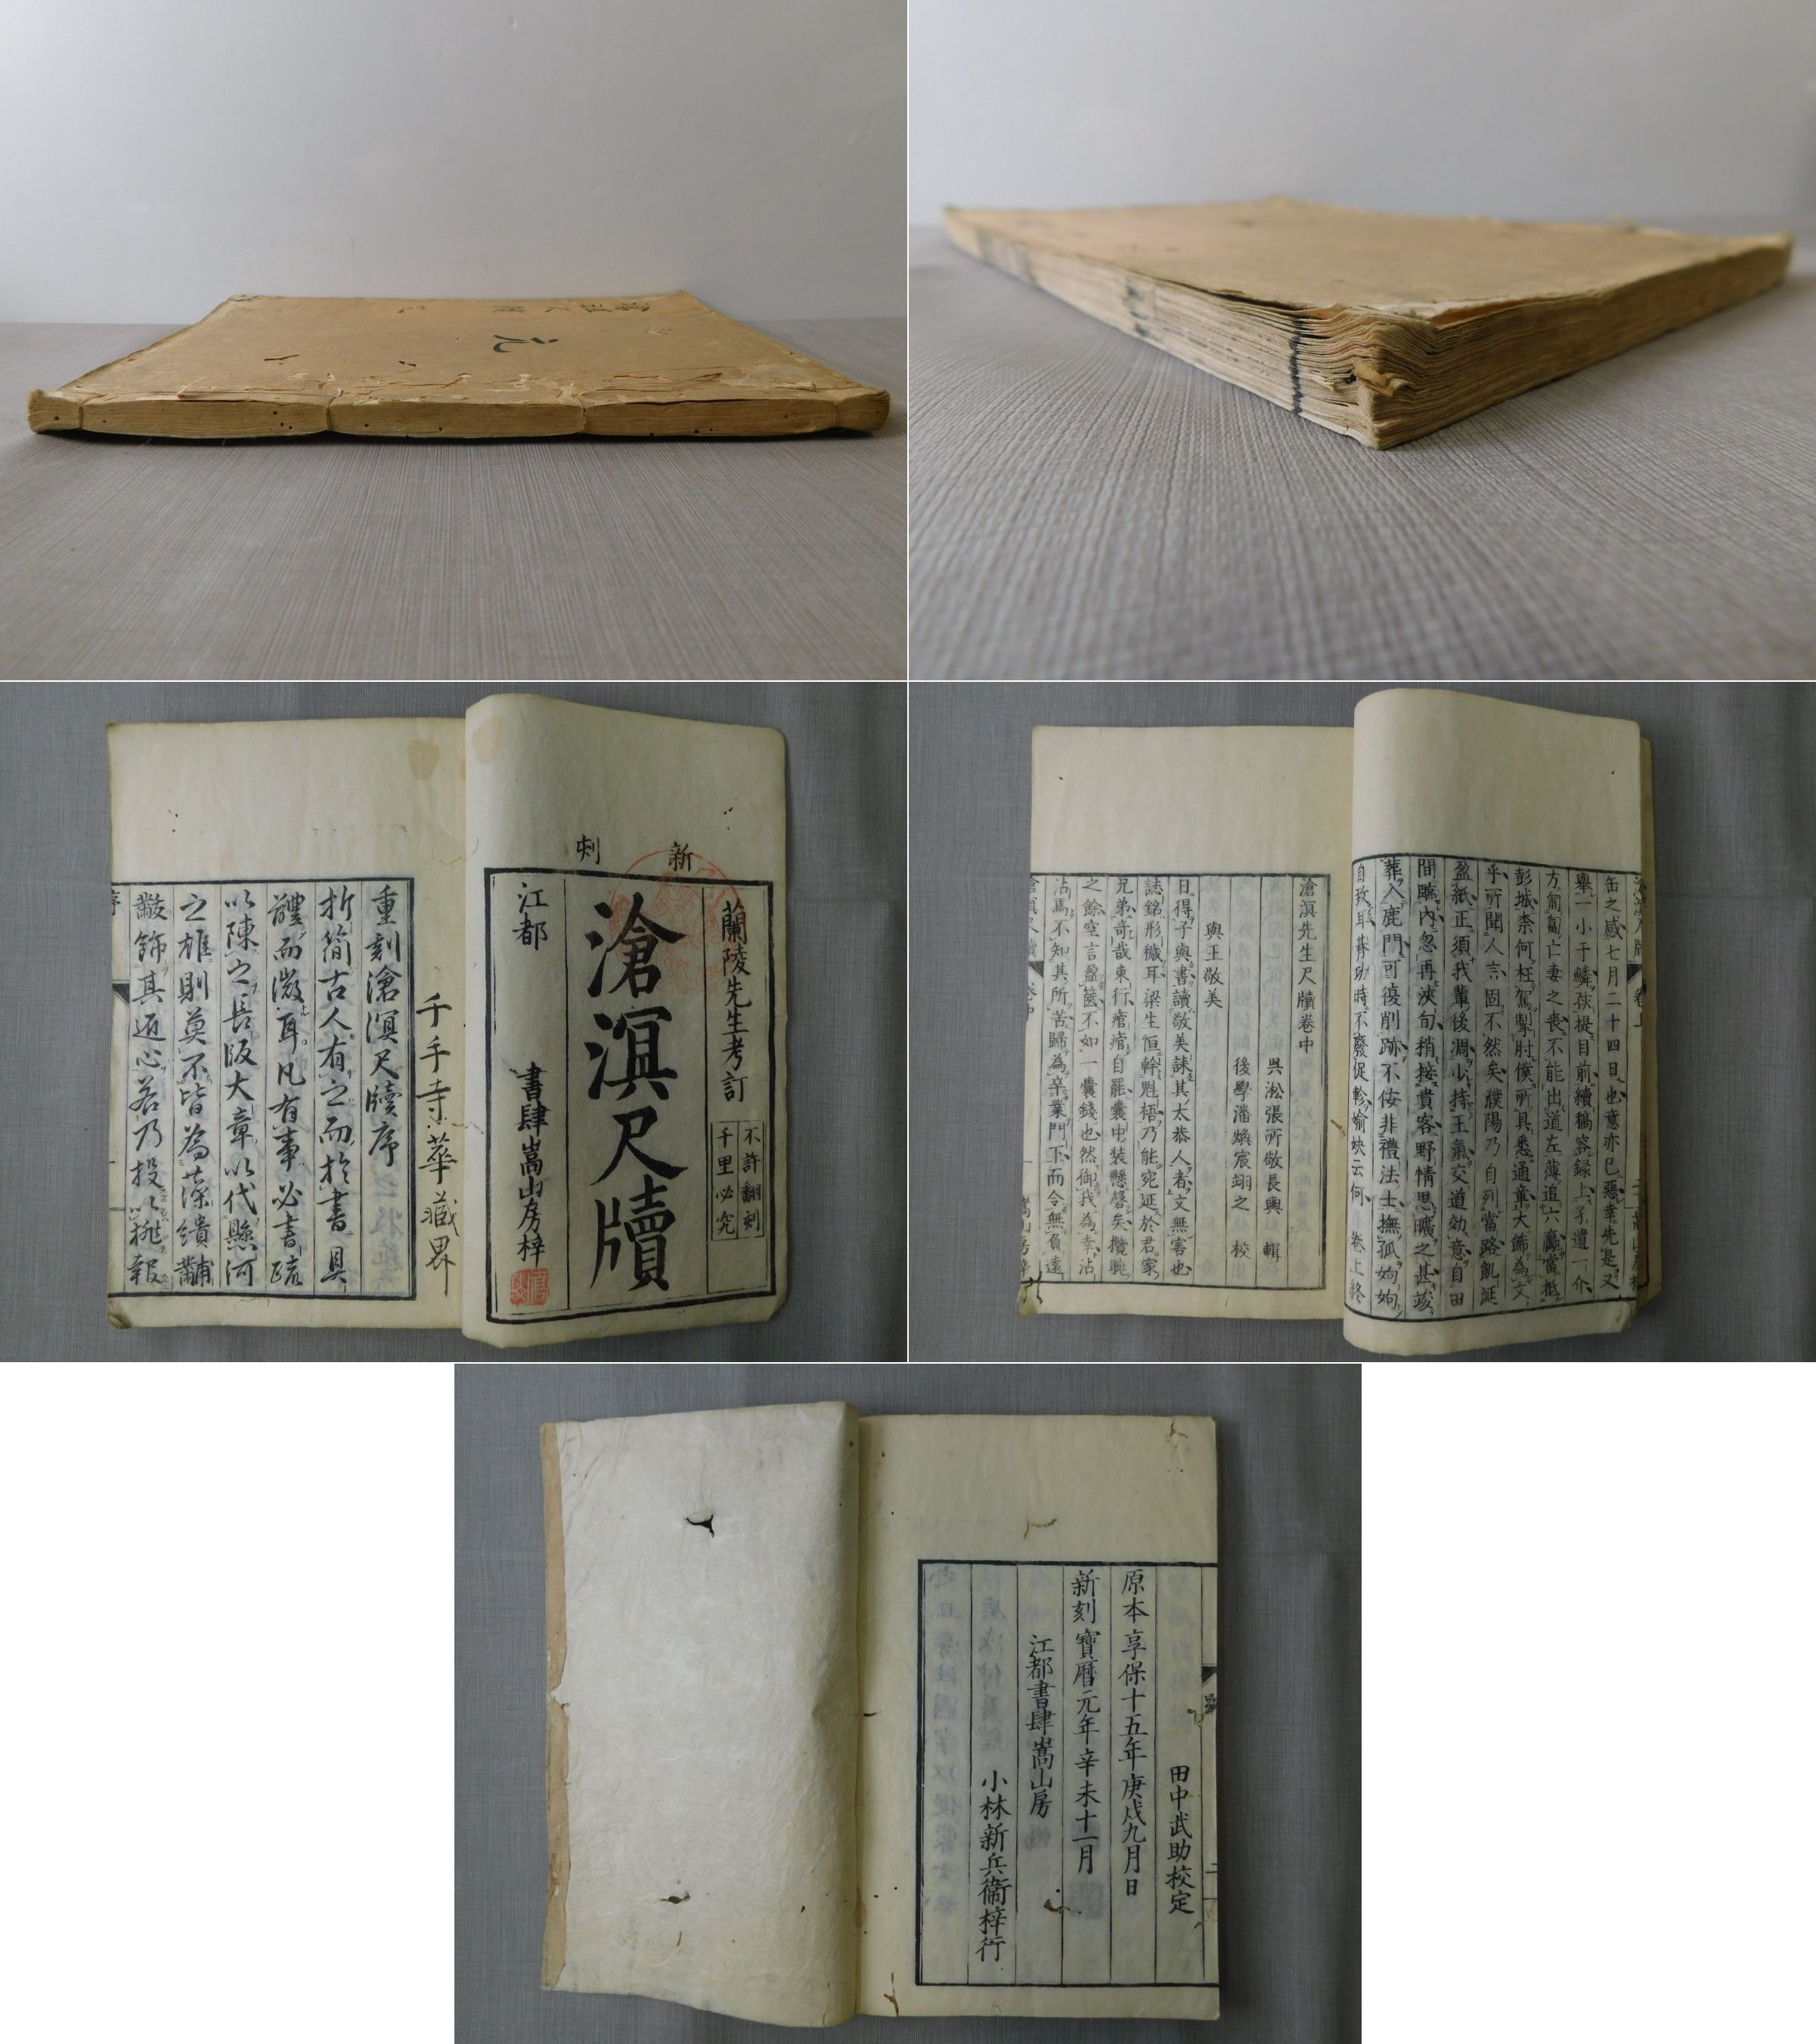 元
新刻
蘭陵先生考訂
不許翻刻
千里必究
滄溟尺牘
江都
書肆嵩山房梓
千手寺華蔵界
重刻滄溟尺牘序
折簡古人有之而於書具
體而微耳凡有事必書疏
以陳之長版大章以代懸河
之雄則莫不皆為藻繢黼
黻飾其邇心若乃投以挑報
序
缶之感七月二十四日也意亦已惡幸先是又
舉一小于鱗孩提目前續稿容録上孑遺一介
方匍匐亡妻之喪不能出道左薄追六贏當抵
彭城柰何枉駕掣肘僕所具悉通章大篩為文
乎所聞人言固不然矣濮陽乃自列當路飢涎
盈紙正須我輩後凋小持王氣交道効意自田
間臨內忽再浹旬稍接貴客野情思曠之甚茇
葬入鹿門可復削跡不佞非禮法士撫孤姁姁
自孜耳莽助時不廢促軫愉姎云何 卷上終
滄溟先生尺牘卷中
吳淞張所敬長輿 輯
後學潘煥宸翊之 校
與王敬美
日得子與書讀敬美誄其太恭人者文無害也
誌銘形穢耳梁生恒幹魁梧乃能宛延於君家
兄弟奇哉東行㾓㾓自罷囊中装懸磬矣攬眺
之餘空言盈篋不如一囊錢也然御我為幸沾
沾馬不知其所苦歸為卒業門下而令無負遠
田中武助校定
原本享保十五年庚戌九月日
新刻寶曆元年辛未十一月
江都書肆嵩山房
小林新兵衞梓行